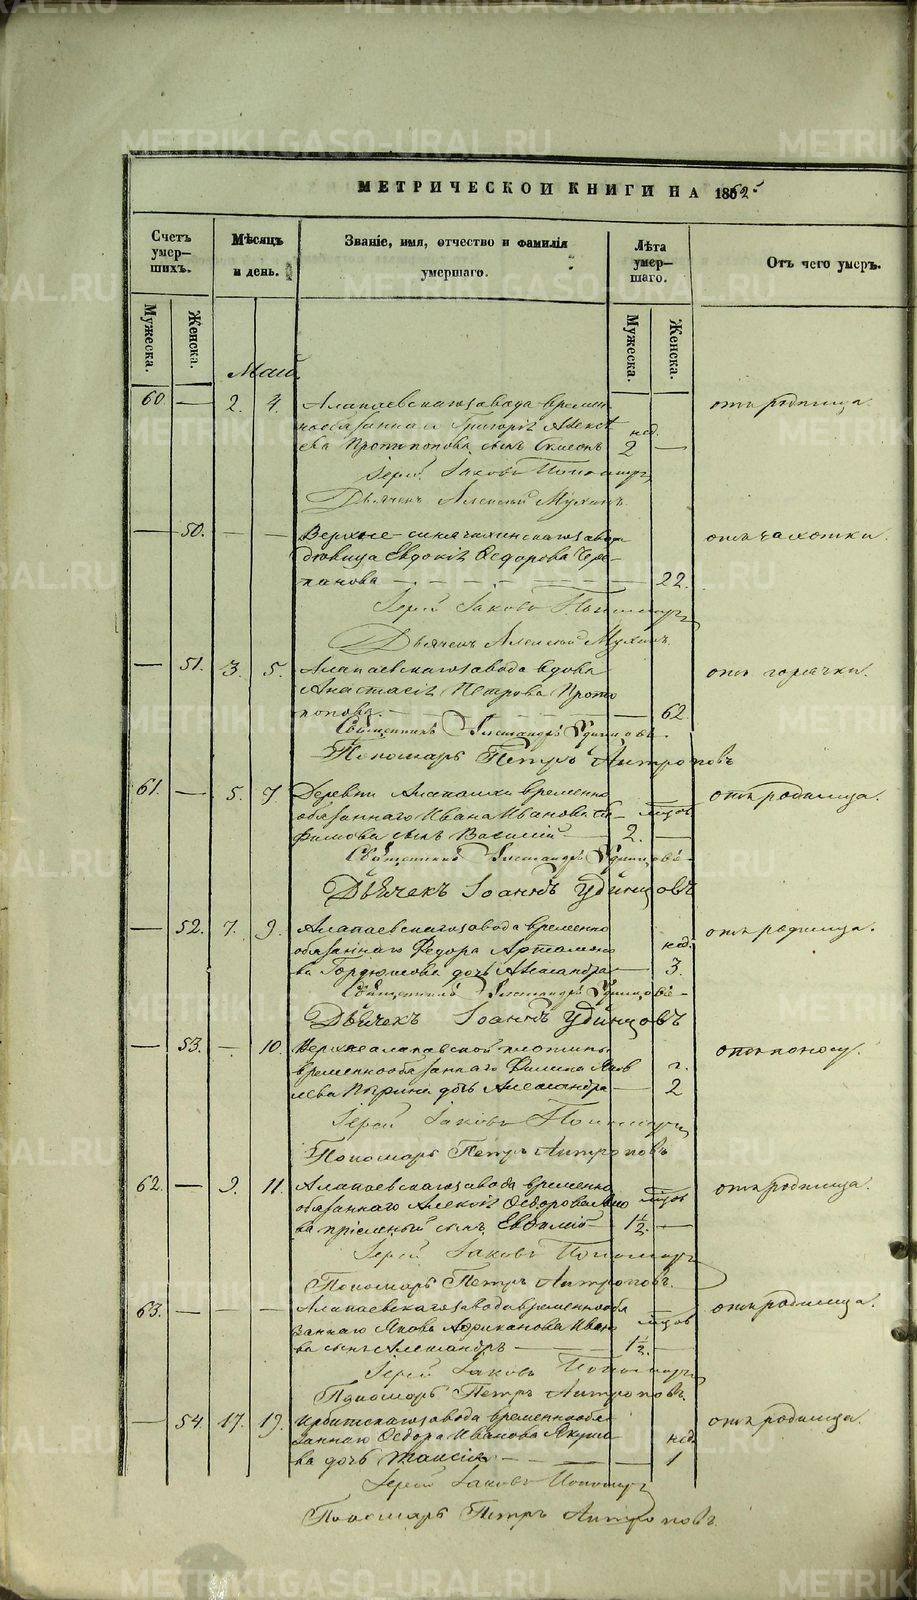 МЕТРИЧЕСКОЙ КНИГИ НА 1862
Счетъ умерших. Мѣсяцъ и день. Званіе, имя, отчество и фамилія умершаго. Лѣта умершаго. Отъ чего умеръ.
Мужеска. Женска. Мужеска. Женска.
Май.
60. — 2. 4. Алапаевскаго завода времен отъ родимца.
нообязаннаго Григорія Алексѣ нед.
ева Протопопова сынъ Симеонъ 2 —
Іерей Іаковъ Пономаревъ
Дьячекъ Алексѣй Мухинъ
— 50. — — Верхне-синячихинскаго завода отъ чахотки.
дѣвица Евдокія Ѳедорова Чере-
панова — — 22.
Іерей Іаковъ Пономаревъ
Дьячекъ Алексѣй Мухинъ
— 51. 3. 5. Алапаевскаго завода вдова отъ горячки.
Анастасія Петрова Прото
попова. — 62.
Священникъ Александръ Удинцовъ.
Пономарь Петръ Антроповъ
61. — 5. 7 Деревни Алапаихи временно отъ родимца.
обязаннаго Ивана Иванова Ев- мѣсцов
фимова сынъ Василій — 2. —
Священникъ Александръ Удинцовъ
Дьячекъ Іоаннъ Удинцовъ
— 52. 7. 9. Алапаевскаго завода временно отъ родимца.
обязаннаго Федора Артамоно нед.
ва дочь Александра — 3.
Священникъ Александръ Удинцовъ
Дьячекъ Іоаннъ Удинцовъ
— 53. — 10. Верхнеалапаевской плотины отъ поносу.
временнообязаннаго Филипа Яков г.
лева дочь Александра — 2
Іерей Іаковъ Пономаревъ
Пономарь Петръ Антроповъ
62. — 9. 11. Алапаевскаго завода временно отъ родимца.
обязаннаго Алексія Ѳедорова мѣсцов
ва пріемный сынъ 1½. —
Іерей Іаковъ Пономаревъ
Пономарь Петръ Антроповъ.
63. — — — Алапаевскаго завода временнообя отъ родимца.
заннаго Якова Африканова Ивано мѣсцов
ва сынъ Александръ — 1½. —
Іерей Іаковъ Пономаревъ
Пономарь Петръ Антроповъ.
— 54. 17. 19. Ирбитскаго завода временнообя отъ родимца.
заннаго Ѳедора Иванова Якуше нед.
ва дочь Таисія — — 1
Іерей Іаковъ Пономаревъ
Пономарь Петръ Антроповъ.
METRIKI.GASO-URAL.RU